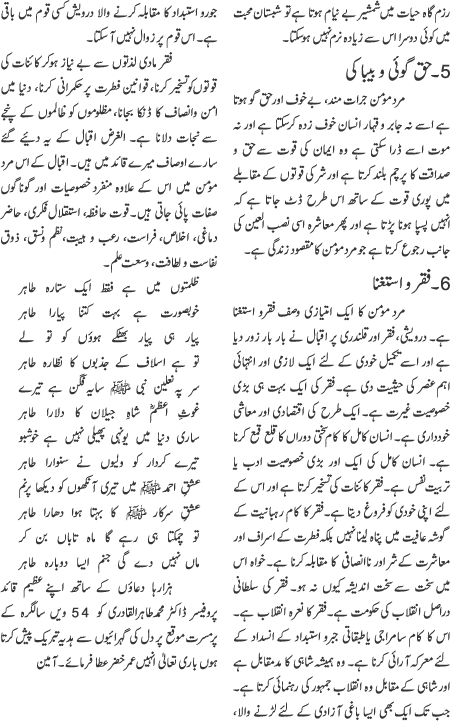 رزم گاہ حیات میں شمشیر بے نیام ہوتا ہے تو شبستان محبت
میں کوئی دوسرا اس سے زیادہ نرم نہیں ہوسکتا۔
5۔ حق گوئی و بیباکی
مرد مؤمن جرات مند، بے خوف اور حق گو ہوتا
ہے اسے نہ جابر و قہار انسان خوف زدہ کرسکتا ہے اور نہ
موت اسے ڈرا سکتی ہے وہ ایمان کی قوت سے حق و
صداقت کا پرچم بلند کرتا ہے اور شر کی قوتوں کے مقابلے
میں پوری قوت کے ساتھ اس طرح ڈٹ جاتا ہے کہ
انہیں پسپا ہونا پڑتا ہے اور پھر معاشرہ اسی نصب العین کی
جانب رجوع کرتا ہے جو مرد مؤمن کا مقصود زندگی ہے۔
6۔ فقر و استغنا
مرد مؤمن کا ایک امتیازی وصف فقر و استغنا
ہے۔ درویشی، فقر اور قلندری پر اقبال نے بار بار زور دیا
ہے اور اسے تکمیل خودی کے لئے ایک لازمی اور انتہائی
اہم عنصر کی حیثیت دی ہے۔ فقر کی ایک بہت ہی بڑی
خصوصیت غیرت ہے۔ ایک طرح کی اقتصادی اور معاشی
خودداری ہے۔ انسان کامل کا کام سختی دوراں کا قلع قمع کرنا
ہے۔ انسان کامل کی ایک اور بڑی خصوصیت ادب یا
تربیت نفس ہے۔ فقر کائنات کی تسخیر کرتا ہے اور اس کے
لئے اپنی خودی کو فروغ دیتا ہے۔ فقر کا کام رہبانیت کے
گوشہ عافیت میں پناہ لینا نہیں بلکہ فطرت کے اسراف اور
معاشرت کے شر اور ناانصافی کا مقابلہ کرنا ہے۔ خواہ اس
میں سخت سے سخت اندیشہ کیوں نہ ہو۔ فقر کی سلطانی
دراصل انقلاب کی حکومت ہے۔ فقر کا نعرہ انقلاب ہے۔
اس کا کام سامراجی یا طبقاتی جبر و استبداد کے انسداد کے
لئے معرکہ آرائی کرنا ہے۔ وہ ہمیشہ شاہی کا مدمقابل ہے
اور شاہی کے مقابل وہ انقلاب جمہور کی رہنمائی کرتا ہے۔
جب تک ایک بھی ایسا باغی آزادی کے لئے لڑنے والا،
جور و استبداد کا مقابلہ کرنے والا درویش کسی قوم میں باقی
ہے۔ اس قوم پر زوال نہیں آسکتا۔
فقر مادی لذتوں سے بے نیاز ہوکر کائنات کی
قوتوں کو تسخیر کرنا، قوانین فطرت پر حکمرانی کرنا، دنیا میں
امن و انصاف کا ڈنکا بجانا، مظلوموں کو ظالموں کے پنجے
سے نجات دلانا ہے۔ الغرض اقبال کے یہ دیئے گئے
سارے اوصاف میرے قائد میں ہیں۔ اقبال کے اس مرد
مؤمن میں اس کے علاوہ منفرد خصوصیات اور گوناگوں
صفات پائی جاتی ہیں۔ قوت حافظہ، استقلال فکری، حاضر
دماغی، اخلاص، فراست، رعب و ہیبت، نظم و نسق، ذوق
نفاست و لطافت، وسعت علم۔
ظلمتوں میں ہے فقط ایک ستارہ طاہر
خوبصورت ہے بہت کتنا پیارا طاہر
پیار ہی پیار بھٹکے ہوؤں کو تو لے
تو ہے اسلاف کے جذبوں کا نظارہ طاہر
سر پہ نعلین نبی ﷺ سایہ فگن ہے تیرے
غوثِ اعظمؓ شاہِ جیلان کا دلارا طاہر
ساری دنیا میں یونہی پھیلی نہیں ہے خوشبو
تیرے کردار کو ولیوں نے سنوارا طاہر
عشقِ احمد ﷺ میں تیری آنکھوں کو دیکھا پرنم
عشقِ سرکار ﷺ کا بہتا ہوا دھارا طاہر
تو چمکتا ہی رہے گا ماہ تاباں بن کر
ماں نہیں دے گی جنم ایسا دوبارہ طاہر
ہزارہا دعاؤں کے ساتھ اپنے عظیم قائد
پروفیسر ڈاکٹر محمد طاہرالقادری کو 54 ویں سالگرہ کے
پرمسرت موقع پر دل کی گہرائیوں سے ہدیہ تبریک پیش کرتا
ہوں باری تعالیٰ انہیں عمر خضر عطا فرمائے۔ آمین